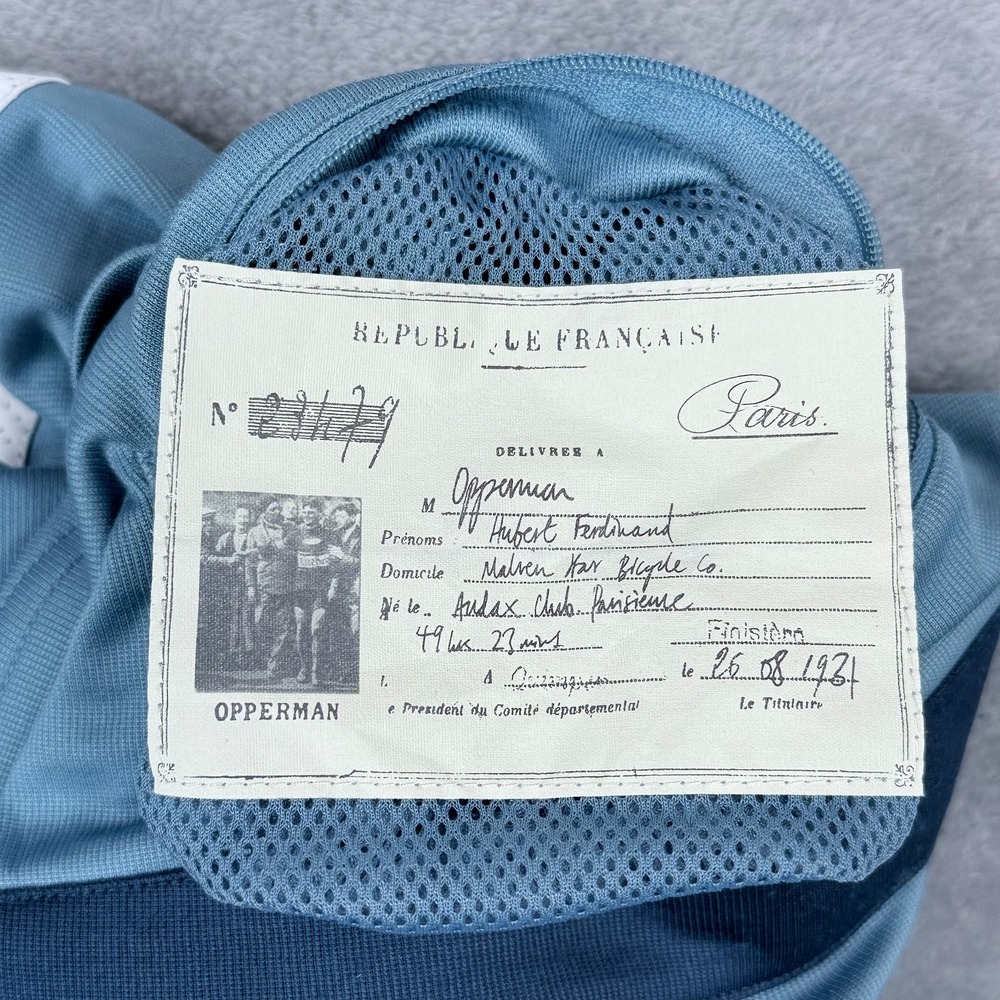 REPUBLIQUE FRANÇAISE
Nº
Paris.
DELIVREE A
M Opperman
Prénoms : Hubert Ferdinand
Domicile Malvern Star Bicycle Co.
Né le.. Audax Club Parisienne
49 hrs 23 mins
Finistère
A
le 26 08 1931
e President du Comité départemental
Le Titulaire
OPPERMAN